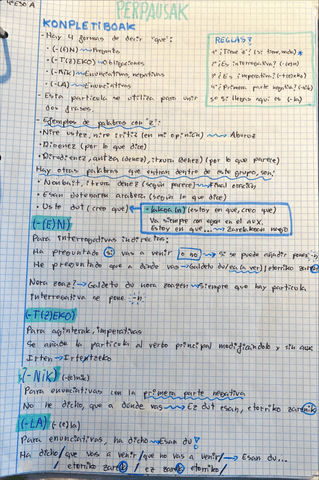 4º ESO A
PERPAUSAK
KONPLETIBOAK
- Hay 4 formas de decir "que":
- (-(E)N) → Pregunta
- (-T(Z)EKO) → Obligaciones
- (-NiK) → Enunciativas negativas
- (-LA) → Enunciativas
- Esta partícula se utiliza para unir dos frases.
REGLAS?
1º ¿Tiene 'z'?
2º ¿Es interrogativa? (-(e)n)
3º ¿Es imperativa? (-t(z)eko)
4º ¿Primera parte negativa? (-nik)
5º Si llegas aquí es (-la)
- Ejemplos de palabras con 'z':
• Nire ustez, nire iritziz (en mi opinión) → Aburoz
• Dioenez (por lo que dice)
• Dirudienez, antza (denez), itxura (denez) (por lo que parece)
Hay otras palabras que entran dentro de este grupo, son:
• Nonbait, itxura denez (según parece) → Final oración
• Esan dutenaren arabera (según lo que dice)
• Uste dut (creo que)
- lakoa(n) (estoy en que, creo que)
Va siempre con egon en el aux.
Estoy en que... → Zarelakoan nago
(-(E)N)
Para interrogativas indirectas:
Ha preguntado si vas a venir o no → Si se puede añadir pones -n
He preguntado que a dónde vas → Galdetu du ea (a ver) etorriko zaren
Nora zoaz? → Galdetu du nora zoazen → siempre que hay partícula
interrogativa se pone -n
(-T(Z)EKO)
Para aginterak, imperativas
Se añade la partícula al verbo principal modificándolo y sin aux
Irten → Irtetzeko
(-NiK) (-(e)nik)
Para enunciativas con la primera parte negativa
No he dicho, que a donde vas → Ez dut esan, etorriko zarenik
(-LA) (-(e)la)
Para enunciativas, ha dicho → Esan du
Ha dicho/que vas a venir/que no vas a venir/ → Esan du...
/ etorriko zarela / ez zarela etorriko/